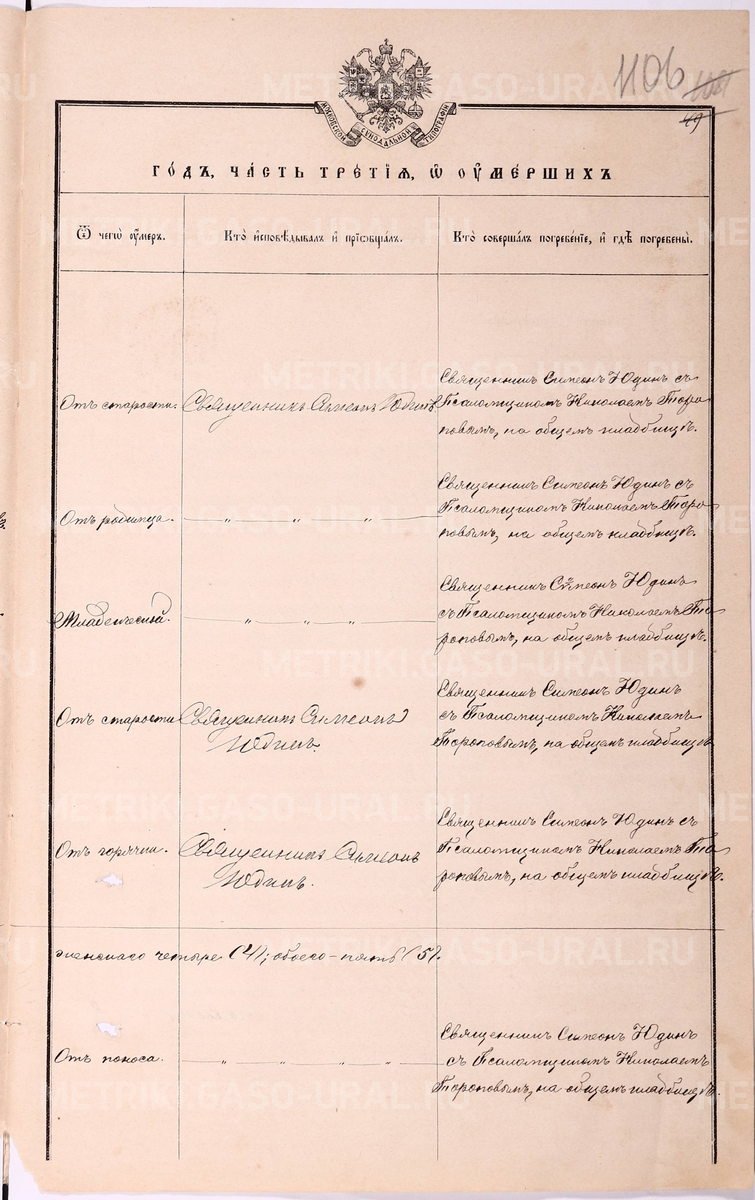 1106
49
МОСКОВСКОЙ СУНОДАЛЬНОЙ ТИПОГРАФІИ
ГО́ДЪ, ЧА́СТЬ ТРЕ́ТІѦ, Ѡ ОУМЕ́РШИХЪ
Ѿ чегѡ̀ оу҆́мер.
Кто̀ и҆сповѣ́дывалъ и҆ прїѡбща́лъ.
Кто̀ соверша́лъ погребе́нїе, и҆ гдѣ̀ погребены̀.
Отъ старости.
Священникъ Симеонъ Юдинъ
Священникъ Симеонъ Юдинъ съ
Псаломщикомъ Николаемъ Торо
повымъ, на общемъ кладбищѣ.
Отъ родимца.
— „ — „ — „ —
Священникъ Симеонъ Юдинъ съ
Псаломщикомъ Николаемъ Торо
повымъ, на общемъ кладбищѣ.
Младенческой.
— „ — „ — „ —
Священникъ Симеонъ Юдинъ
съ Псаломщикомъ Николаемъ То
роповымъ, на общемъ кладбищѣ.
Отъ старости
Священникъ Симеонъ
Юдинъ.
Священникъ Симеонъ Юдинъ
съ Псаломщикомъ Николаемъ
Тороповымъ, на общемъ кладбищѣ
Отъ горячки.
Священникъ Симеонъ
Юдинъ.
Священникъ Симеонъ Юдинъ съ
Псаломщикомъ Николаемъ То
роповымъ, на общемъ кладбищѣ.
женскаго четыре (4); обоего - пять (5).
Отъ поноса.
— „ — „ — „ — „ —
Священникъ Симеонъ Юдинъ
съ Псаломщикомъ Николаемъ
Тороповымъ, на общемъ кладбищѣ.
METRIKI.GASO-URAL.RU